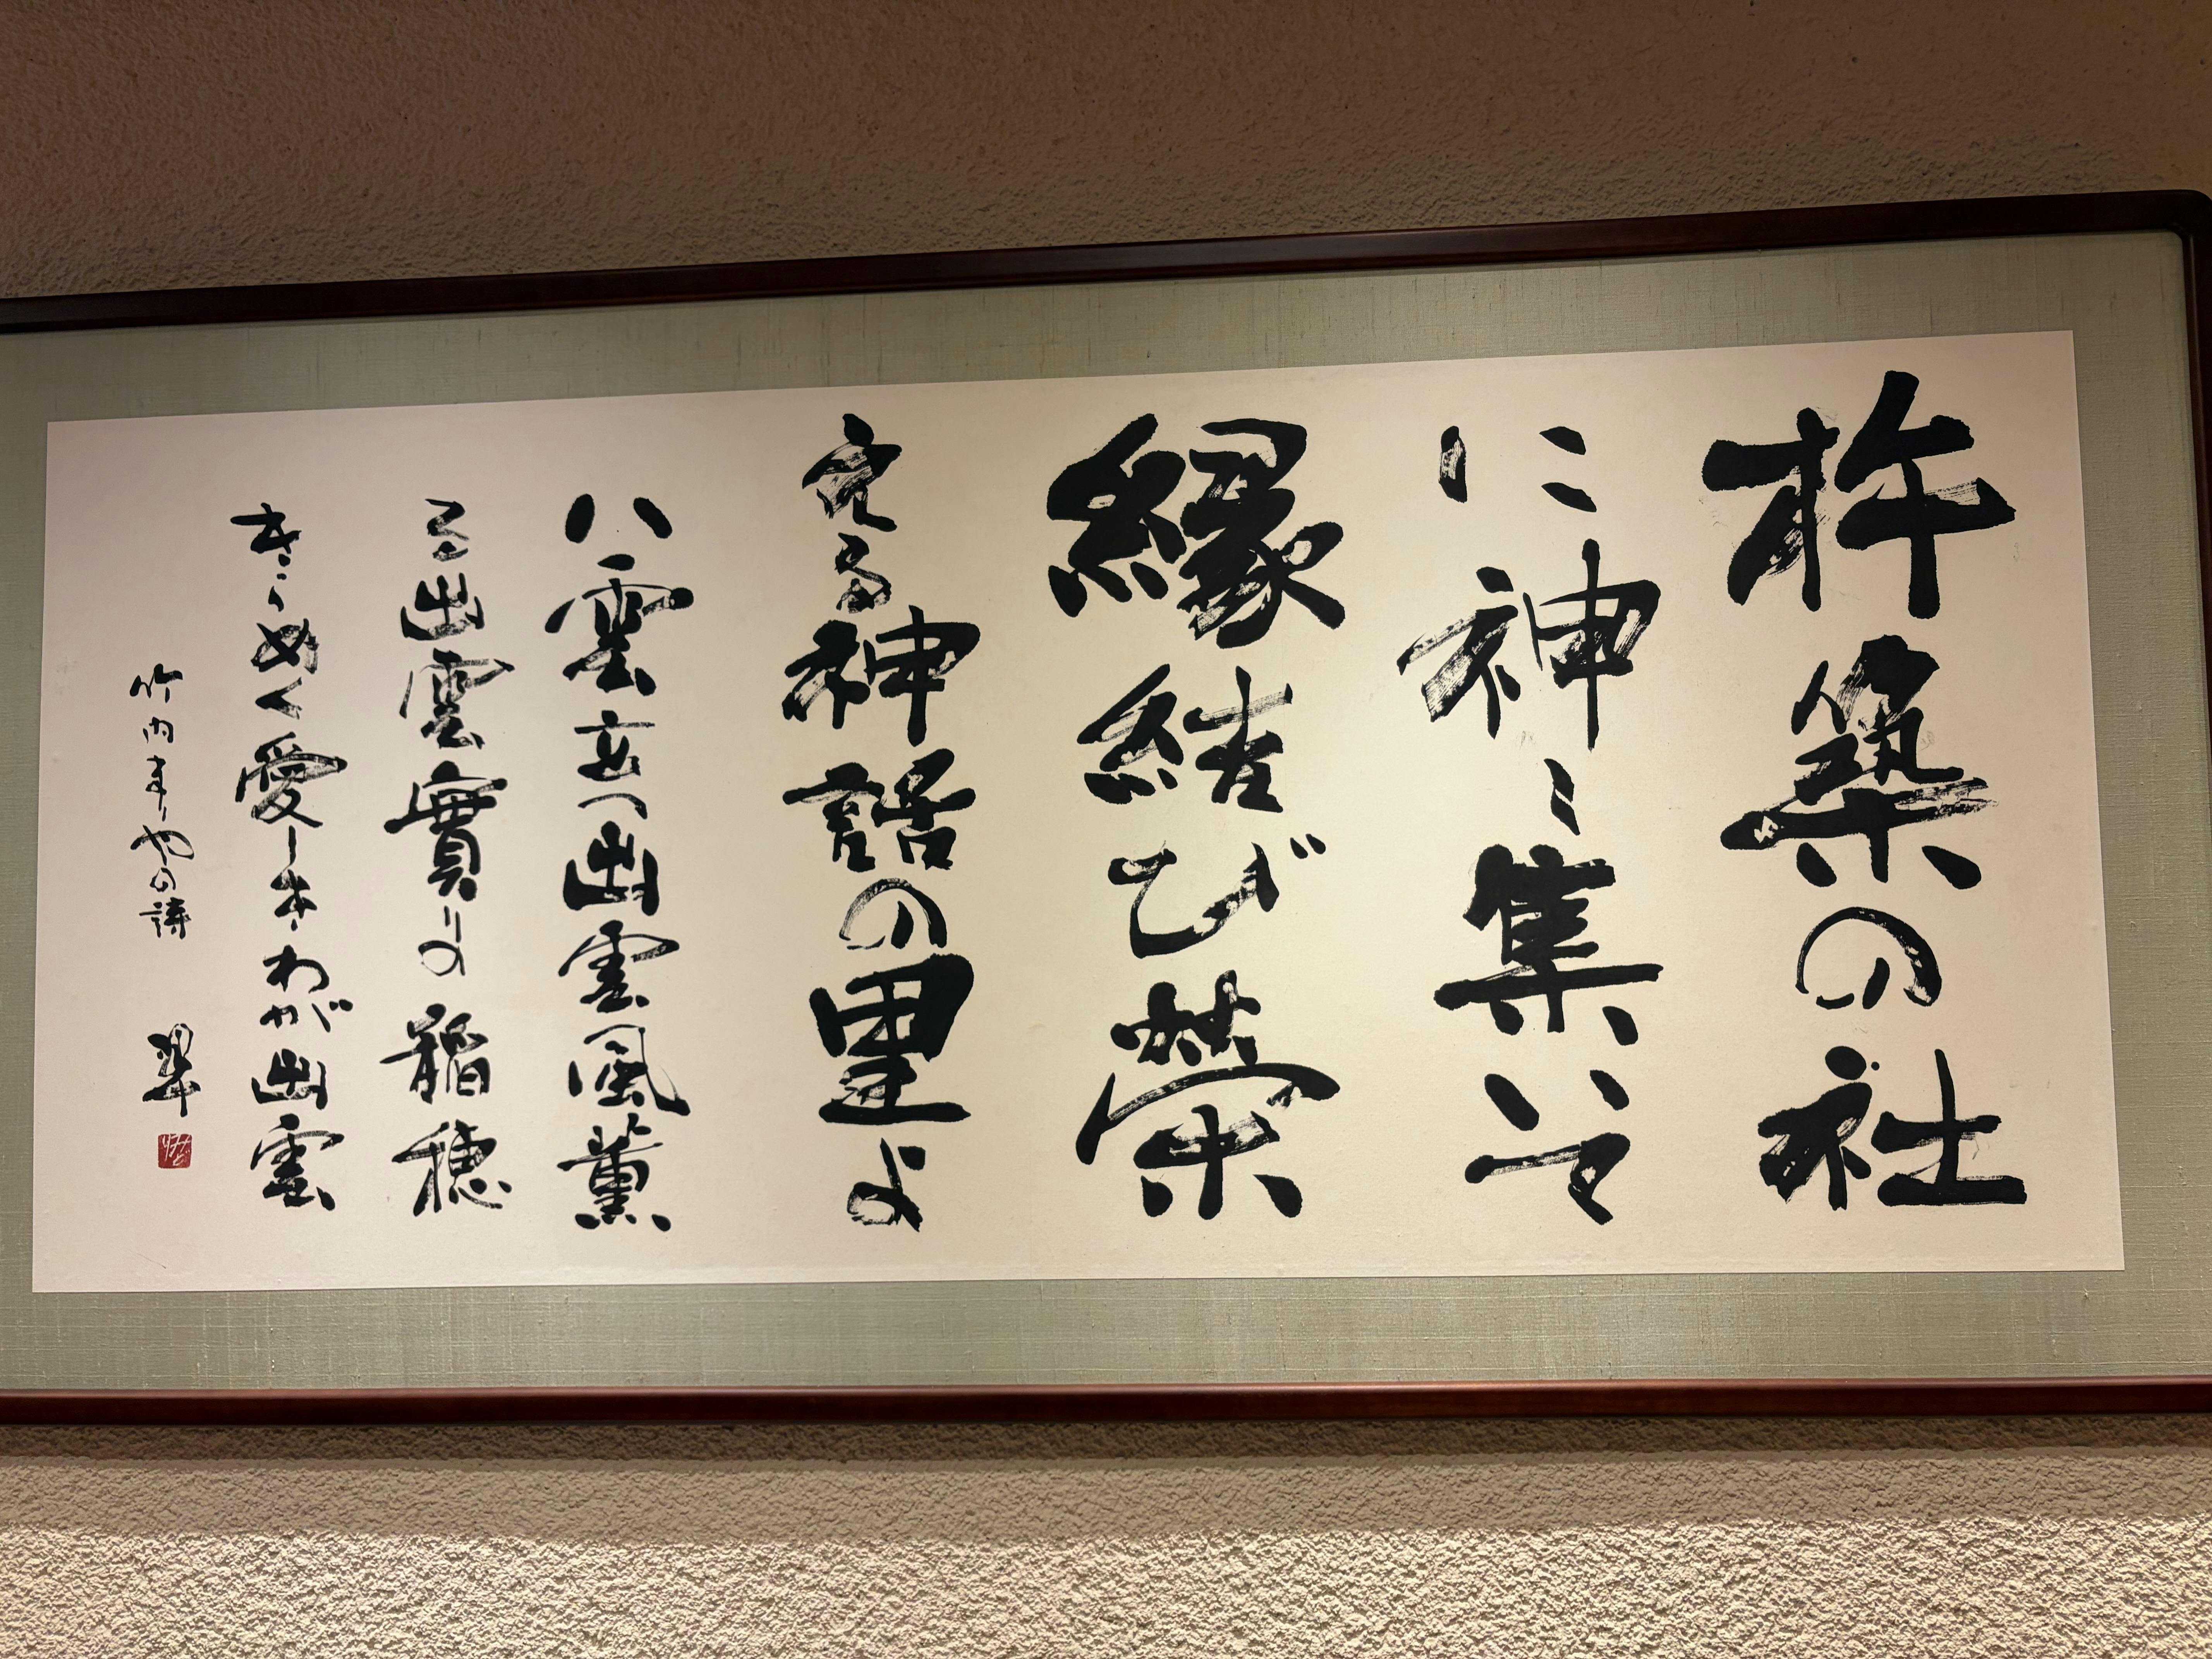 杵築の社
に神〻集いて
縁結び榮
える神話の里よ
八雲立つ出雲風薫
る出雲實りの稲穂
きらめく愛しきわが出雲
竹内まりやの詩 翠